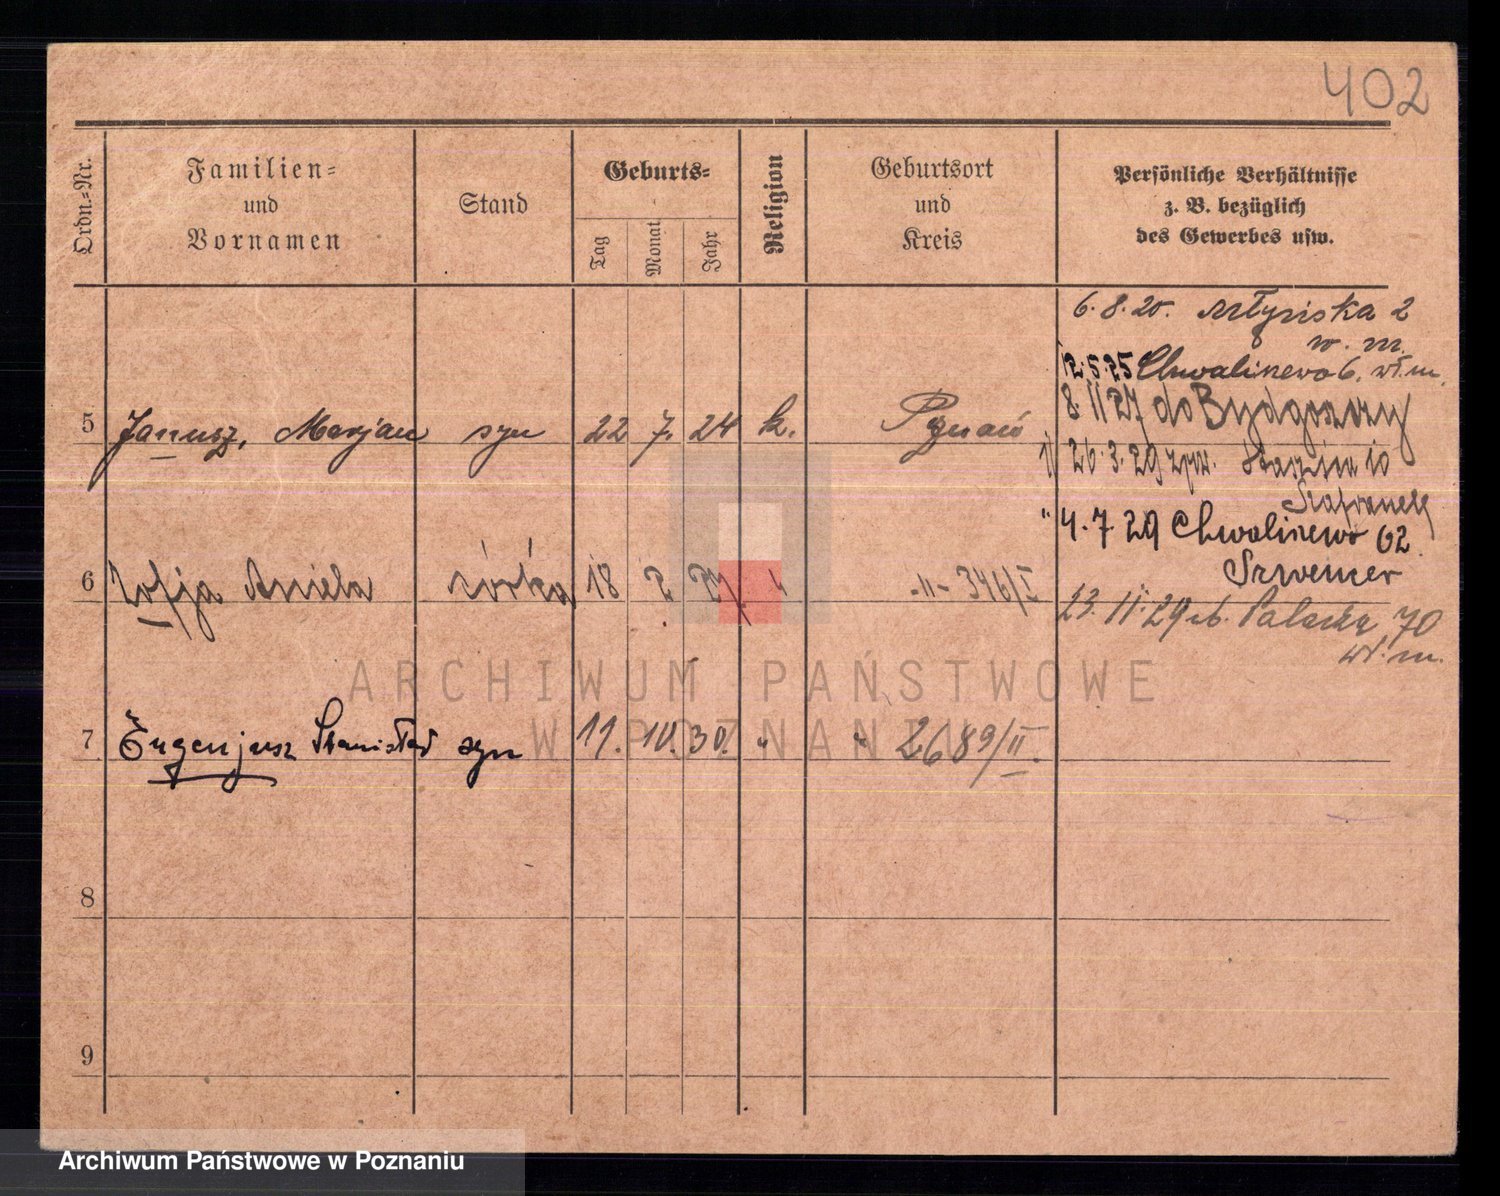 402
Ordn.-Nr.
Familien-
und
Vornamen
Stand
Geburts-
Tag
Monat
Jahr
Religion
Geburtsort
und
Kreis
Persönliche Verhältnisse
z. B. bezüglich
des Gewerbes usw.
6.8.20. Młyńska 2
w. m.
12.5.25 Chwaliszewo 6. wł. m.
8.11 27 do Bydgoszczy
5 Janusz, Marjan syn 22 7. 24 k. Poznań
26.3.29 10
Szafranek
" 4.7 29 Chwaliszewo 62
6 Zofja Aniela córka 18 2 27 " -"- 346/I
23.11.29 70
wł. m.
7 Eugenjusz Stanisław syn 11. 10. 30. " " 2689/II.
8
9
ARCHIWUM PAŃSTWOWE
W POZNANIU
Archiwum Państwowe w Poznaniu